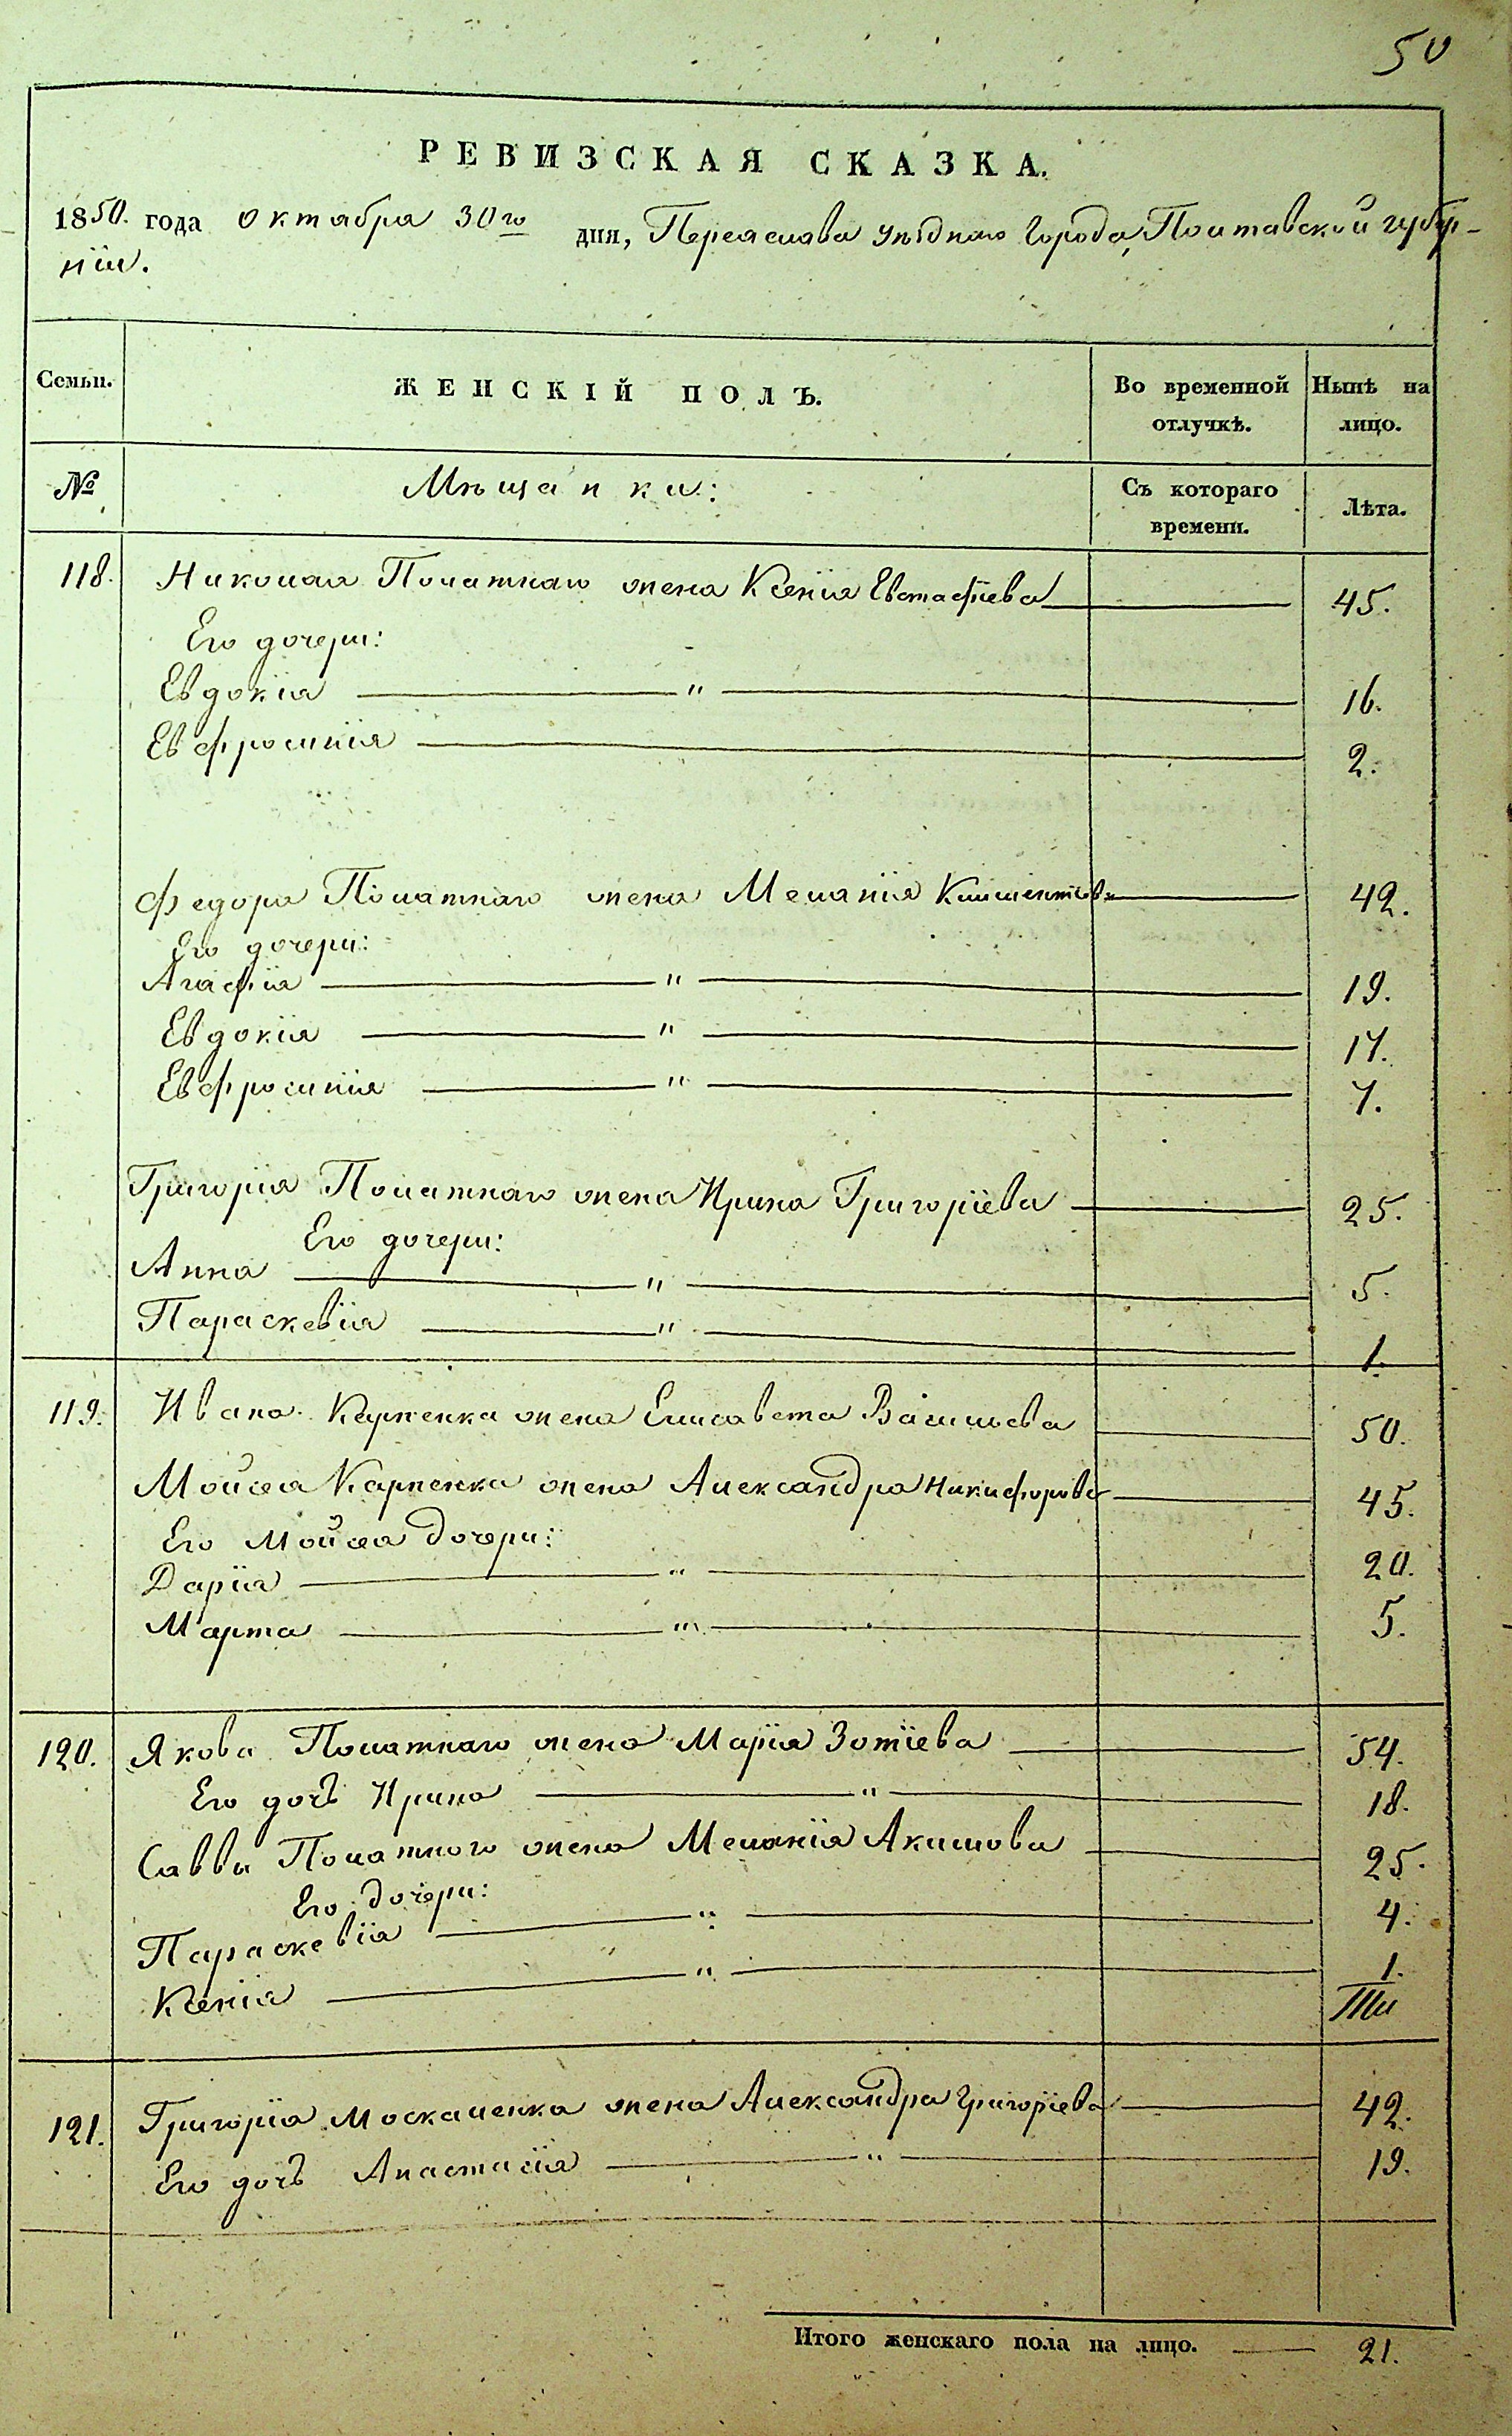 50
РЕВИЗСКАЯ СКАЗКА.
1850. года октабра 30го дня, Переаслава уѣзднаго города, Полтавской губер-
ніи.
Семьи. ЖЕНСКІЙ ПОЛЪ. Во временной отлучкѣ. Нынѣ на лицо.
№ Мѣщанки: Съ котораго времени. Лѣта.
118. Николая Полатнаго жена Ксенія Евстафіева 45.
Его дочери:
Евдокія " 16.
Евфросинія 2.
Федора Полатнаго жена Меланія Климентіева 42.
Его дочери:
Агафія " 19.
Евдокія " 17.
Евфросинія " 7.
Григорія Полатнаго жена Ирина Григоріева 25.
Его дочери:
Анна " 5.
Параскевія " 1.
119. Ивана Карпенка жена Елисавета Васильева 50.
Мойсея Карпенка жена Александра Никифорова 45.
Его Мойсея дочери:
Дарія " 20.
Марта " 5.
120. Якова Полатнаго жена Марія Зотіева 54.
Его дочь Ирина " 18.
Саввы Полатного жена Меланія Акимова 25.
Его дочери:
Параскевія " 4.
Ксенія " 1.
121. Григорія Москаленка жена Александра Григоріева 42.
Его дочь Анастасія " 19.
Итого женскаго пола на лицо. 21.